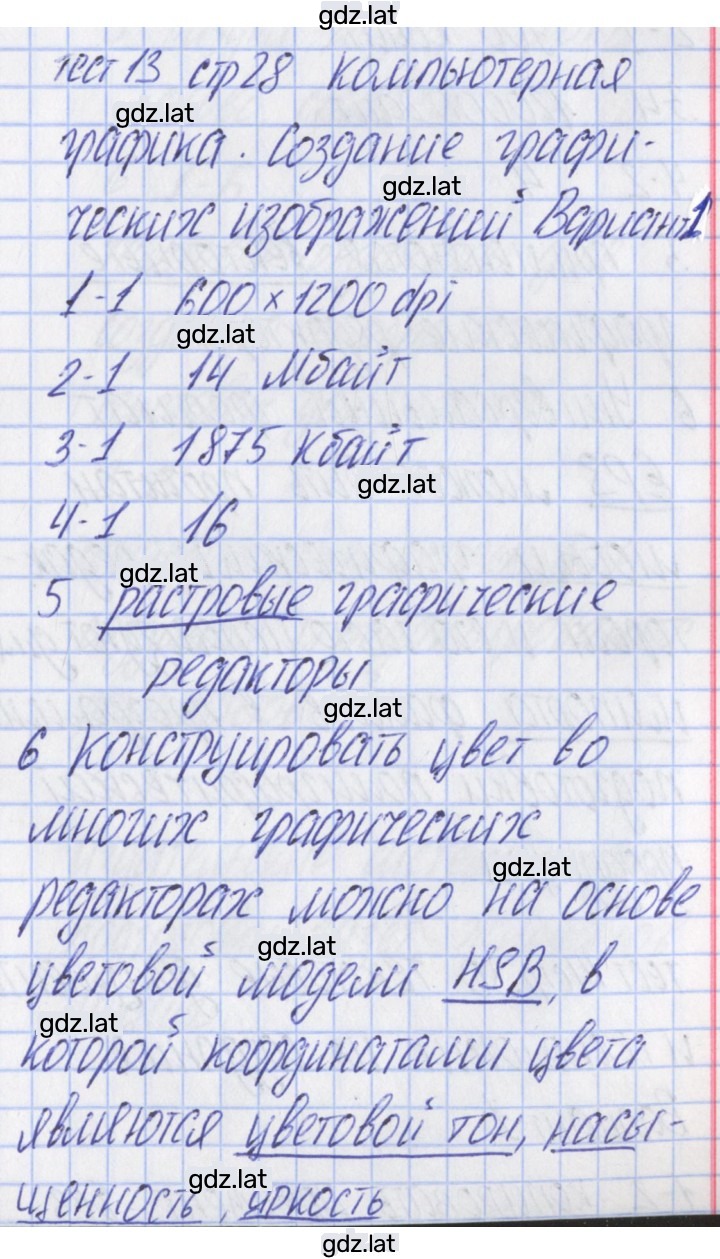 gdz.lat
тест 13 стр 28 компьютерная
gdz.lat
графика. Создание графи-
gdz.lat
ческих изображений Вариант 1
1-1 600 × 1200 dpi
gdz.lat
2-1 14 Мбайт
3-1 1875 Кбайт
gdz.lat
4-1 16
gdz.lat
5 растровые графические
редакторы
gdz.lat
6 Конструировать цвет во
многих графических
gdz.lat
редакторах можно на основе
gdz.lat
цветовой модели HSB, в
gdz.lat
которой координатами цвета
являются цветовой тон, насы-
gdz.lat
щенность, яркость
gdz.lat